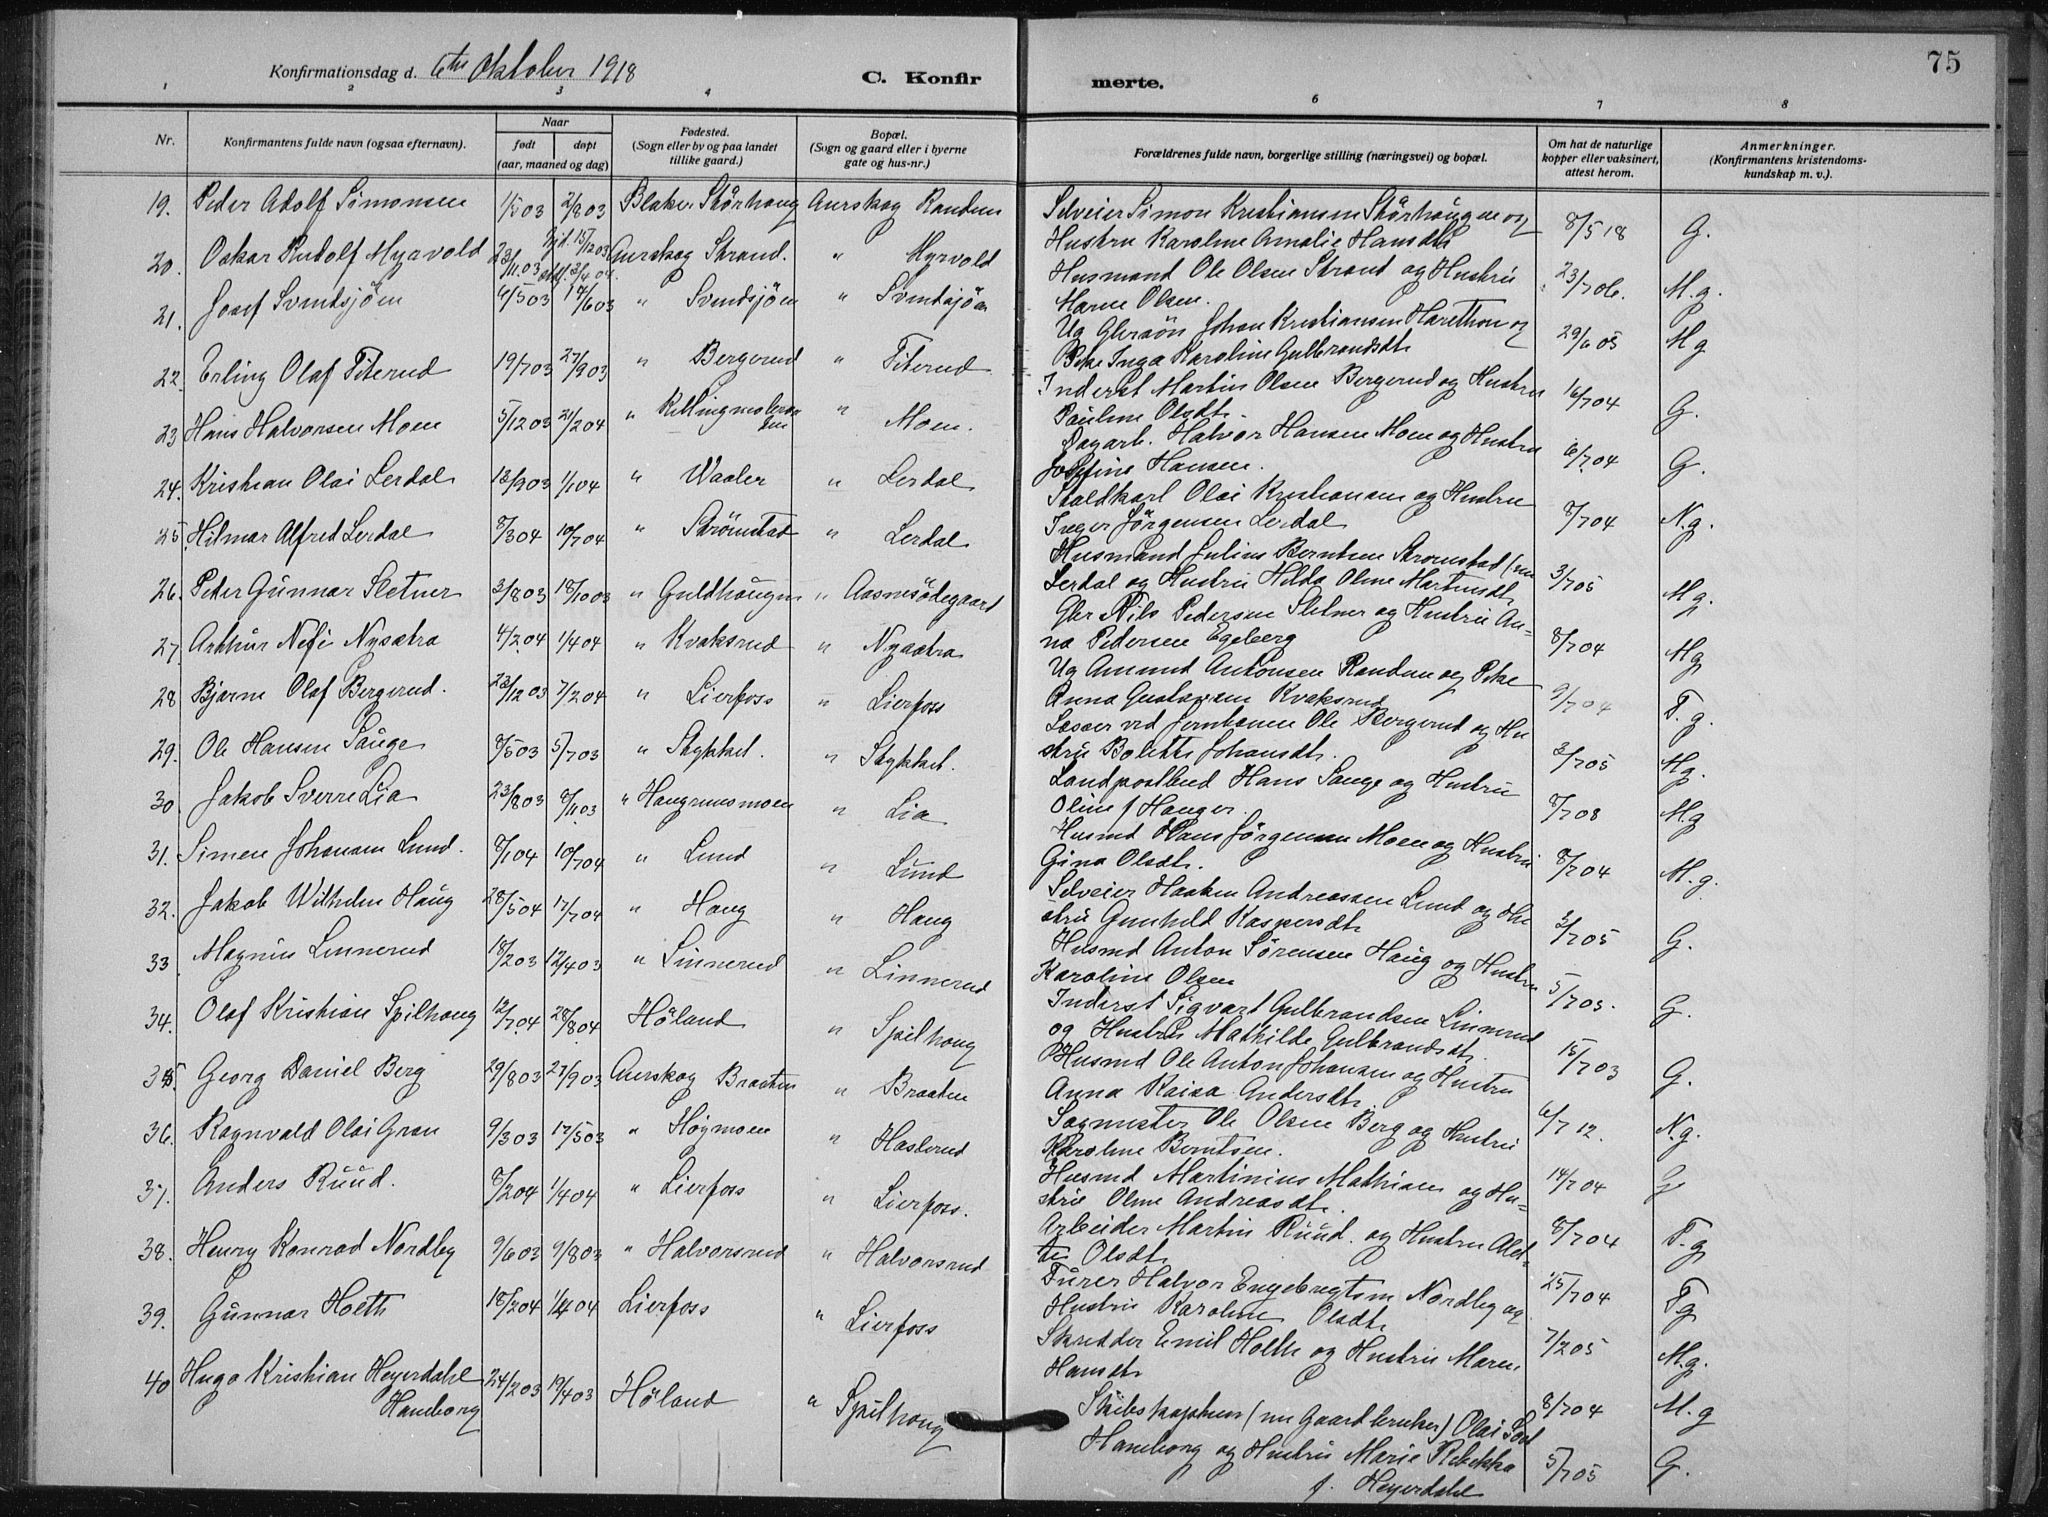 75
Konfirmationsdag d. 6te Oktober 1918
C. Konfir
merte.
1 2 3 4 6 7 8
Nr. Konfirmantens fulde navn (ogsaa efternavn). Naar født døpt (aar, maaned og dag) Fødested. (Sogn eller by og paa landet tillike gaard.) Bopæl. (Sogn og gaard eller i byerne gate og hus-nr.) Forældrenes fulde navn, borgerlige stilling (næringsvei) og bopæl. Om hat de naturlige kopper eller vaksinert, attest herom. Anmerkninger. (Konfirmantens kristendoms- kundskap m. v.).
19. Peder Adolf Simonsen 1/5 03 2/8 03 Blaker Størhaug Aurskog Randem
20. Oskar Rudolf Myrvold 23/11 03 15/12 03 3/4 04. Aurskog Strand. " Myrvold
21. Josef Svendsjøen 6/5 03 14/6 03 " Svendsjøen " Svendsjøen
22. Erling Olaf Fiterud 19/7 03 27/9 03 " Bergerud " Fiterud
23 Hans Halvorsen Moen 5/12 03 21/2 04 " " Moen.
24. Kristian Olai Lerdal 13/9 03 1/1 04 " Waaler " Lerdal
25. Hilmar Alfred Lerdal 8/3 04 10/7 04 " Strømstad " Lerdal
26. Peder Gunnar Sletner 3/8 03 18/10 03 " Guldhaugen " Aasnesødegaard
27. Arthur Nefi Nysætra 4/2 04 1/4 04 " Kvaksrud " Nysætra
28 Bjarne Olaf Bergerud. 23/12 03 7/2 04 " Lierfoss " Lierfoss
29. Ole Hansen Sauge 8/5 03 5/7 03 " Stykket. " Stykket.
30. Jakob Sverre Lia 23/8 03 8/11 03 " Haugrimsmoen " Lia
31. Simen Johansen Lund. 8/1 04 10/7 04 " Lund " Lund
32. Jakob Wilhelm Haug 28/5 04 17/7 04 " Haug " Haug
33 Magnus Linnerud 18/2 03 12/4 03 " Linnerud " Linnerud
34. Olaf Kristian Spilhaug 12/7 04 28/8 04 Høland " Spilhaug
35. Georg Daniel Berg 29/8 03 27/9 03 Aurskog Braaten " Braaten
36. Ragnvald Olai Gran 9/3 03 17/5 03 " Høgmoen " Haslerud
37. Anders Ruud. 8/2 04 1/4 04 " Lierfoss " Lierfoss.
38. Henry Konrad Nordby 9/6 03 9/8 03 " Halvorsrud " Halvorsrud
39. Gunnar Holth 18/2 04 1/4 04 Lierfoss " Lierfoss
40 Hugo Kristian Heyerdahl 24/2 03 19/4 03 Høland " Spilhaug
Hamborg
Selveier Simon Kristiansen Størhaugen og
Hustru Karoline Amalie Hansdt. 8/5 18 G.
Husmand Ole Olsen Strand og Hustru
Maren Olsen. 23/7 06. M.g.
Ug Johan Kristiansen Harethon og
Pike Inga Karoline Gulbrandsdt. 29/6 05 Mg
Inderst Martin Olsen Bergerud og Hustru
Pauline Olsdt. 16/7 04 G.
Dagarb. Halvor Hansen Moen og Hustru
Josefine Hansen. 6/7 04 G.
Staldkarl Olai Kristiansen og Hustru
Inger Jørgensen Lerdal 8/7 04 N.g.
Husmand Julius Berntsen Strømstad (nu
Lerdal og Hustru Hilda Oline Martinsdt. 3/7 05 Mg.
Gbr Nils Pedersen Sletner og Hustru An-
na Pedersen Egeberg 8/7 04 Mg
Ug Amund Antonsen Randem og Pike
Anna Gustavsen Kvaksrud 9/7 04 T.g.
Læsser ved Jernbanen Ole Bergerud og Hu
stru Bolette Johansdt. 3/7 05 Mg.
Landpostbud Hans Sauge og Hustru
Oline f Hauger. 8/7 08 M.g
Husmd Hans Jørgensen Moen og Hustru
Gina Olsdt. 8/7 04 M.g.
Selveier Haaken Andreassen Lund og Hu
stru Gunhild Kaspersdt. 3/7 05 G.
Husmd Anton Sørensen Haug og Hustru
Karoline Olsen 5/7 03. G.
Inderst Sigvart Gulbrandsen Linnerud
og Hustru Mathilde Gulbrandsdt. 15/7 03 G.
Husmd Ole Anton Johansen og Hustru
Anna Kaisa Andersdt. 6/7 12. N.g.
Sagmester Ole Olsen Berg og Hustru
Karoline Berntsen. 14/7 04 G
Husmd Martinius Mathisen og Hu-
stru Oline Andreasdt. 8/7 04 T.g
Arbeider Martin Ruud. og Hustru Alet-
te Olsdt. 25/7 04 Tg
Furer Halvor Engebregtsen Nordby og
Hustru Karoline Olsdt. 7/2 05 M.g.
Skredder Emil Holth og Hustru Maren
Hansdt 8/7 04 M.g
Skibskaptein (nu Gaardbruker) Olai
Hamborg og Hustru Marie Rebekka 5/7 05 G.
f. Heyerdahl